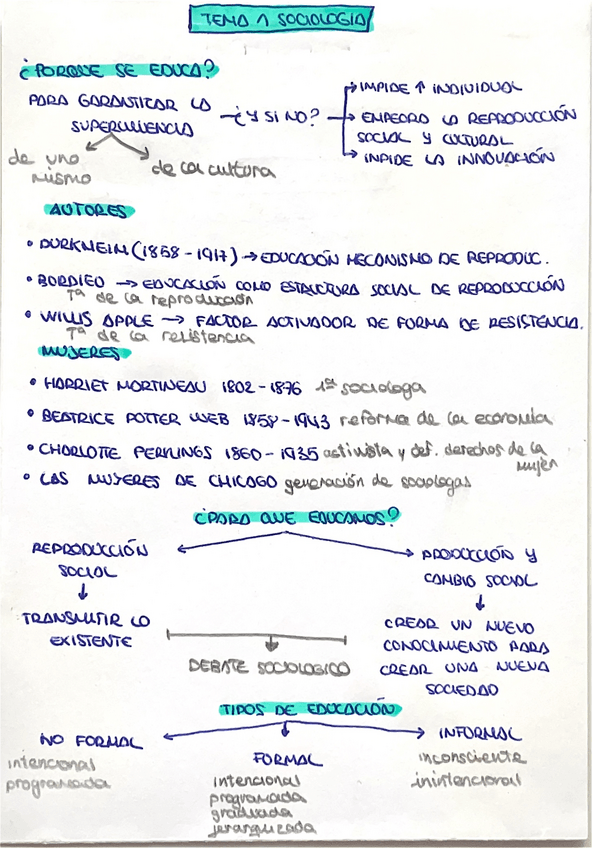 TEMA 1 SOCIOLOGIA
¿PORQUE SE EDUCA?
PARA GARANTIZAR LA
SUPERVIVENCIA
de uno
mismo
de la cultura
¿Y SI NO?
IMPIDE ↑ INDIVIDUAL
EMPEORA LA REPRODUCCIÓN
SOCIAL Y CULTURAL
INPIDE LA INNOVACIÓN
AUTORES
• DURKHEIM (1858-1917) → EDUCACIÓN MECANISMO DE REPRODUC.
• BORDIEO → EDUCACIÓN COMO ESTRUCTURA SOCIAL DE REPRODUCCIÓN
Tª de la reproducción
• WILLIS APPLE → FACTOR ACTIVADOR DE FORMA DE RESISTENCIA.
Tª de la resistencia
MUJERES
• HARRIET MORTINEAU 1802-1876 1ª sociologa
• BEATRICE POTTER WEB 1858-1943 reforma de la economia
• CHARLOTTE PERKINGS 1860-1935 activista y def. derechos de la
mujer
• LAS MUJERES DE CHICAGO generación de sociologas
¿PARA QUE EDUCAMOS?
REPRODUCCIÓN
SOCIAL
↓
TRANSMITIR LO
EXISTENTE
PRODUCCIÓN Y
CAMBIO SOCIAL
↓
CREAR UN NUEVO
CONOCIMIENTO PARA
CREAR UNA NUEVA
SOCIEDAD
DEBATE SOCIOLOGICO
TIPOS DE EDUCACIÓN
NO FORMAL
intencional
programada
FORMAL
intencional
programada
graduada
jerarquizada
INFORMAL
inconsciente
inintencional